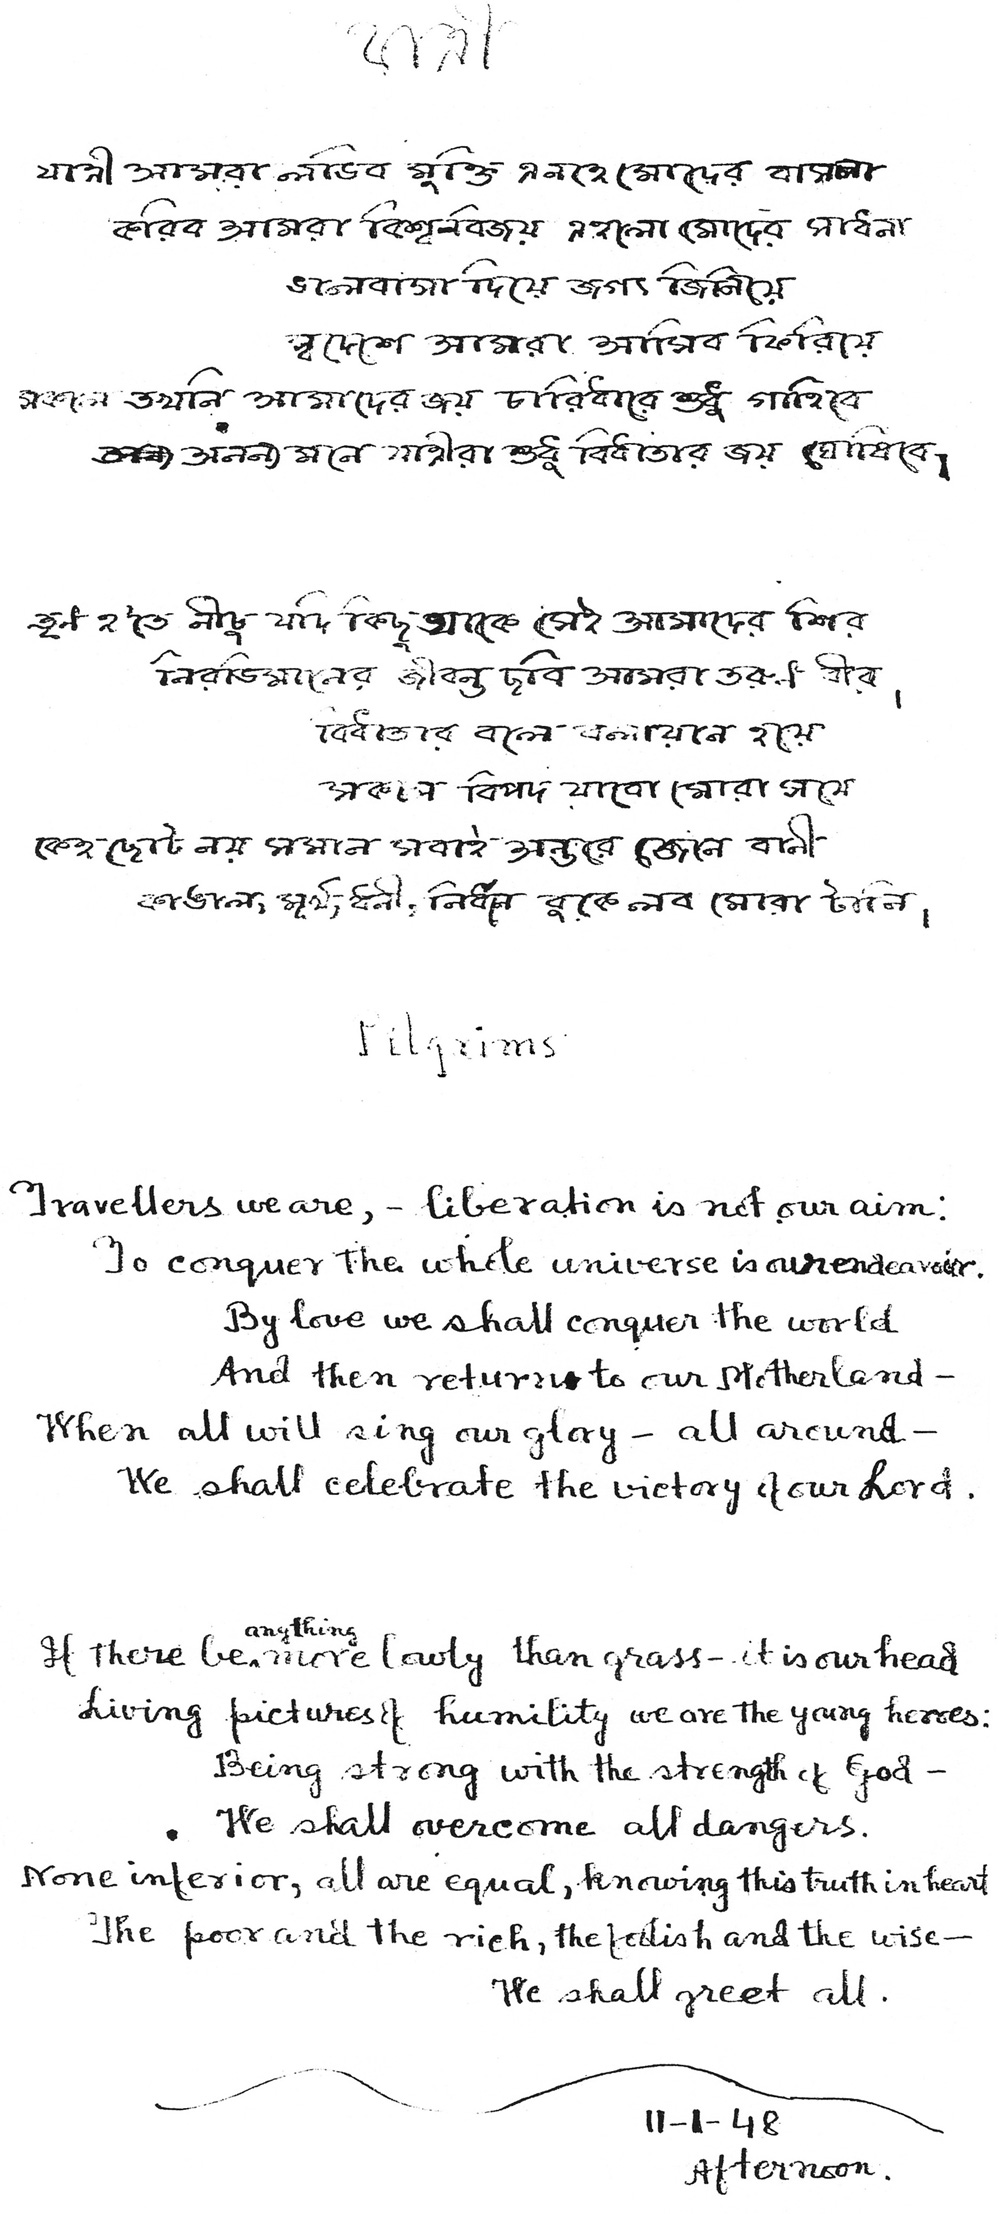 যাত্রী
যাত্রী আমরা লভিব মুক্তি এনহে মোদের বাসনা
করিব আমরা বিশ্ববিজয় এহলো মোদের সাধনা
ভালবাসা দিয়ে জগৎ জিনিয়ে
স্বদেশে আমরা আসিব ফিরিয়ে
সকলে তখনি আমাদের জয় চারিধারে শুধু গাহিবে
অনন্য মনে যাত্রীরা শুধু বিধাতার জয় ঘোষিবে।
তৃণ হতে নীচু যদি কিছু থাকে সেই আমাদের শির
নিরভিমানের জীবন্ত ছবি আমরা তরুণ বীর।
বিধাতার বলে বলীয়ান হয়ে
সকল বিপদ যাবো মোরা সয়ে
কেহ ছোট নয় সমান সবাই অন্তরে জেনে বাণী
কাঙাল, মূর্খ, ধনী, নির্ধন বুকে লব মোরা টানি।
Pilgrims
Travellers we are, - liberation is not our aim:
To conquer the whole universe is our endeavour.
By love we shall conquer the world
And then return to our Motherland -
When all will sing our glory - all around -
We shall celebrate the victory of our Lord.
anything
If there be ‸ more lowly than grass - it is our head
Living pictures of humility we are the young heroes:
Being strong with the strength of God -
We shall overcome all dangers.
None inferior, all are equal, knowing this truth in heart
The poor and the rich, the foolish and the wise -
We shall greet all.
11-1-48
Afternoon.